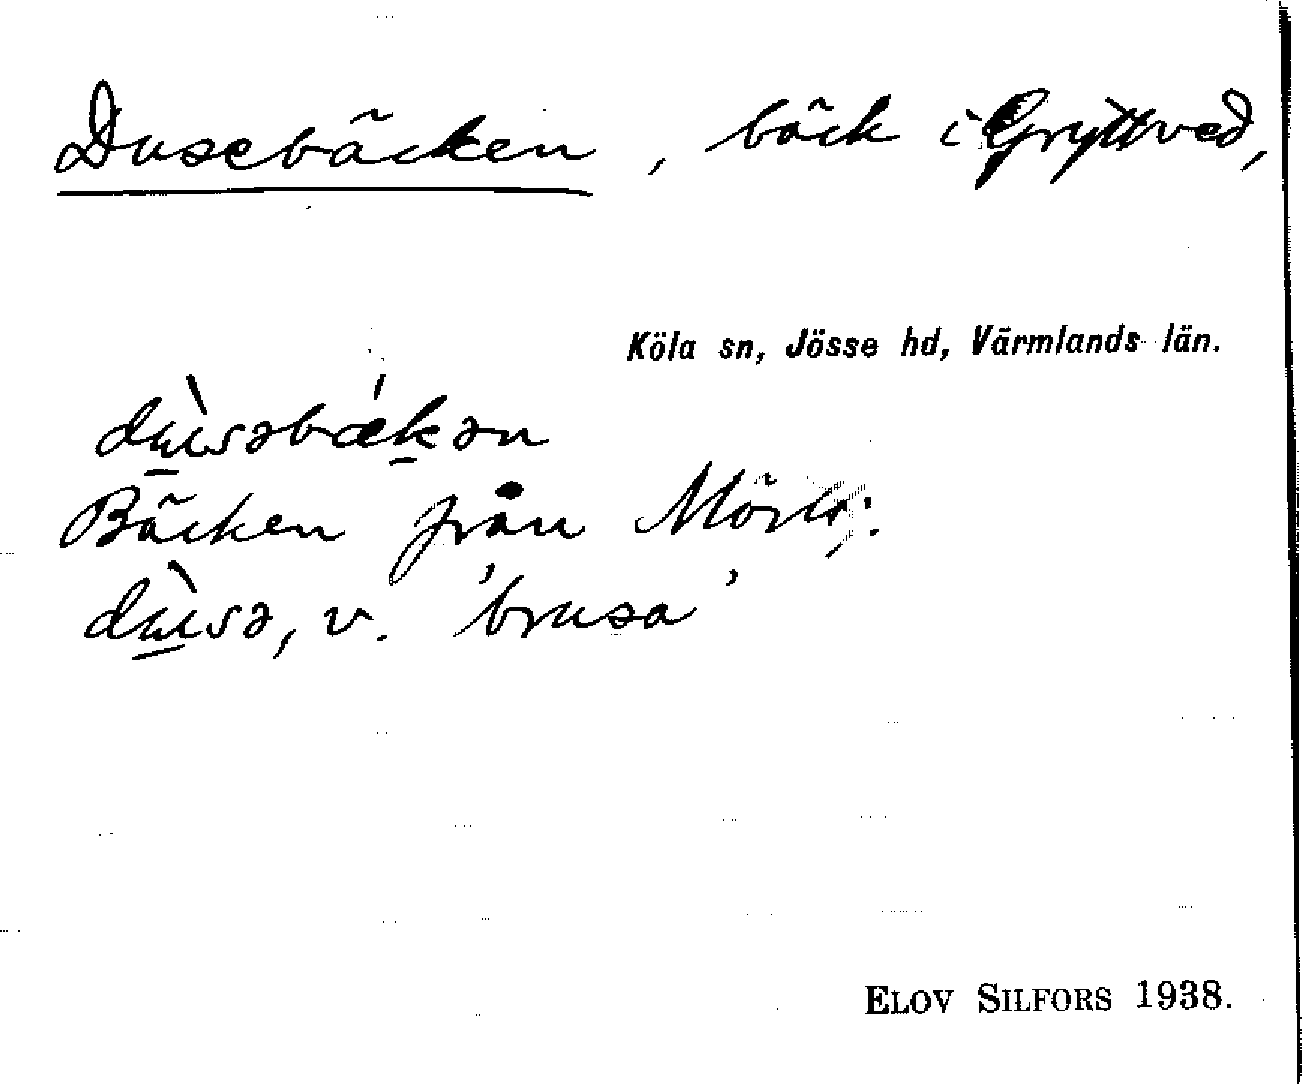 Dusebäcken, bäck i Gryttved,
Köla sn, Jösse hd, Värmlands län.
dɯ̀səbækən
Bäcken från
dɯ̀sə, v. 'brusa'
ELOV SILFORS 1938.